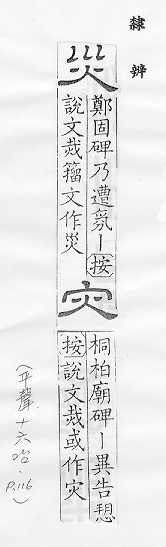 隸辨
災
鄭固碑乃遭氛丨按
說文烖籀文作災
灾
桐柏廟碑丨異告愬
按說文烖或作灾
(平聲十六咍. P.116)